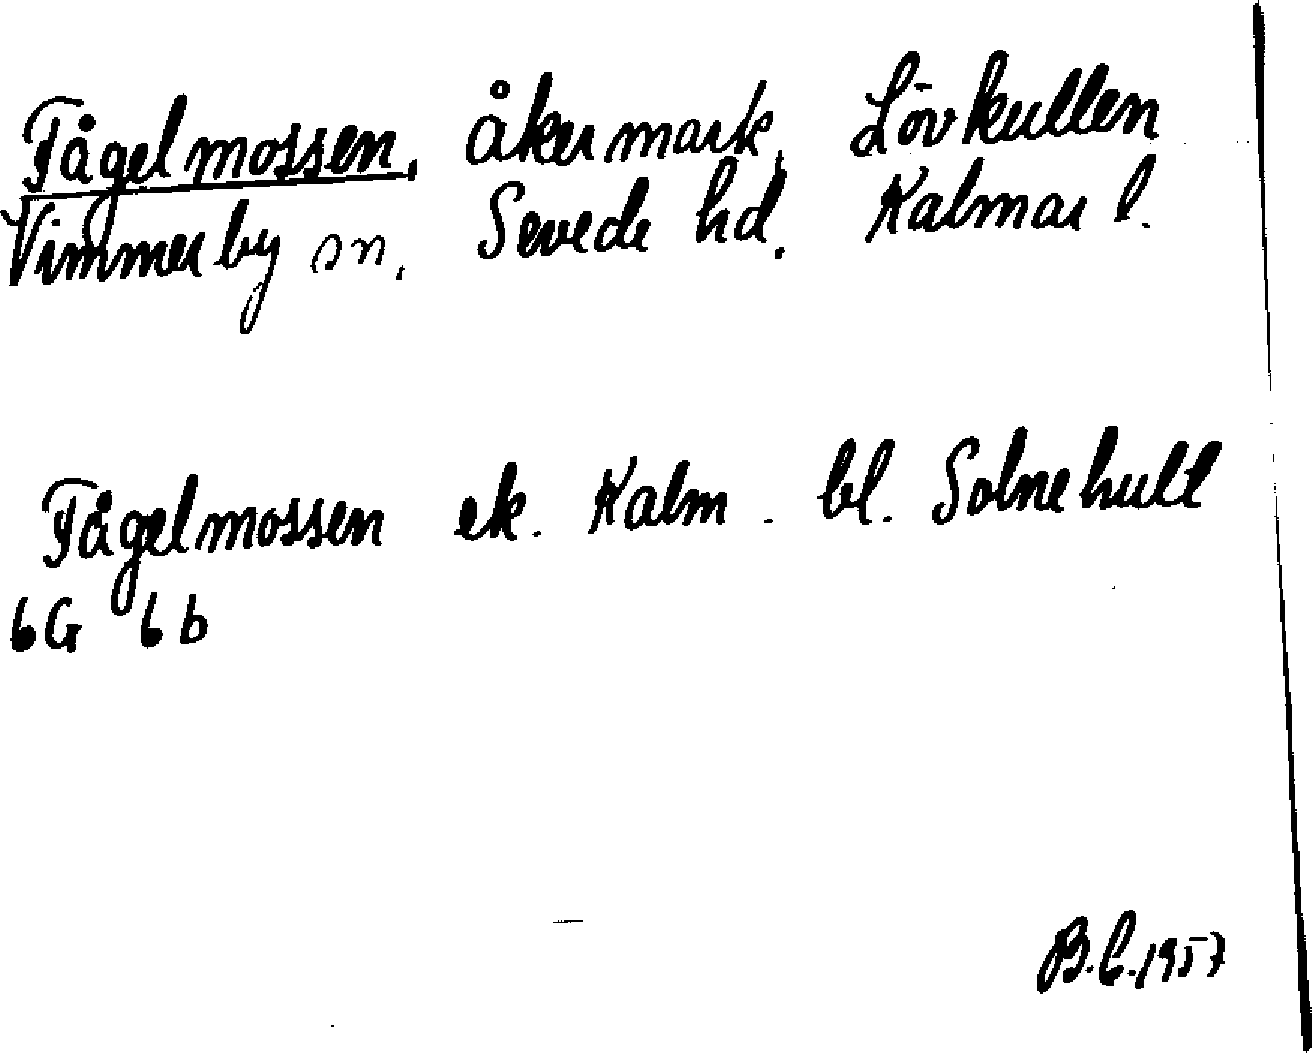 Fågelmossen, åkermark, Lövkullen
Vimmerby sn. Sevede hd. Kalmar l.
Fågelmossen ek. Kalm. bl. Solnehult
6G 6b
B.C. 1957